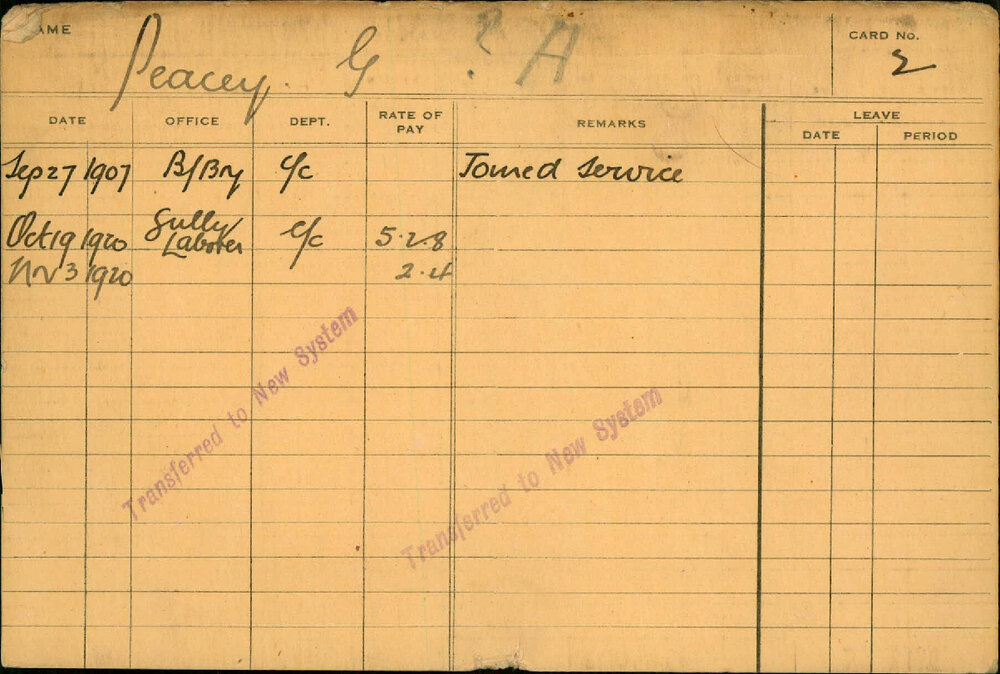 NAME Peacey. G ? ? A CARD No. 2
DATE OFFICE DEPT. RATE OF PAY REMARKS LEAVE
DATE PERIOD
Sep 27 1907 B/Bry C/c Joined Service
Oct 19 1920 Gully Laborer C/c 5.2.8
Nov 3 1920 2.4
Transferred to New System
Transferred to New System